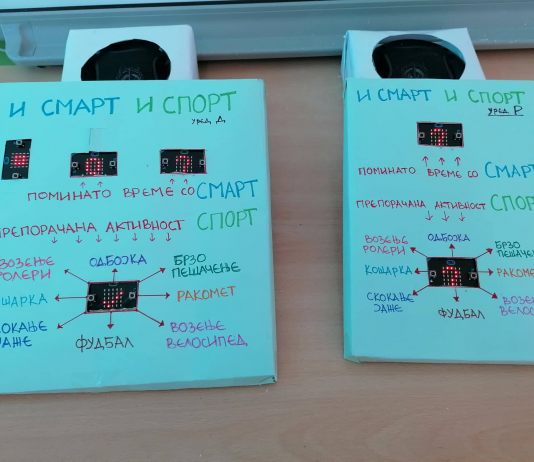 И СМАРТ И СПОРТ
уред Д
ПОМИНАТО ВРЕМЕ СО СМАРТ
ПРЕПОРАЧАНА АКТИВНОСТ СПОРТ
ВОЗЕЊЕ РОЛЕРИ
ОДБОЈКА
БРЗО ПЕШАЧЕЊЕ
КОШАРКА
РАКОМЕТ
СКОКАЊЕ ЈАЖЕ
ФУДБАЛ
ВОЗЕЊЕ ВЕЛОСИПЕД
И СМАРТ И СПОРТ
уред Р
ПОМИНАТО ВРЕМЕ СО СМАРТ
ПРЕПОРАЧАНА АКТИВНОСТ СПО
ВОЗЕЊЕ РОЛЕРИ
ОДБОЈКА
БРЗО ПЕШАЧЕЊ
КОШАРКА
РАКОМЕ
СКОКАЊЕ ЈАЖЕ
ФУДБАЛ
ВОЗЕЊ ВЕЛОС